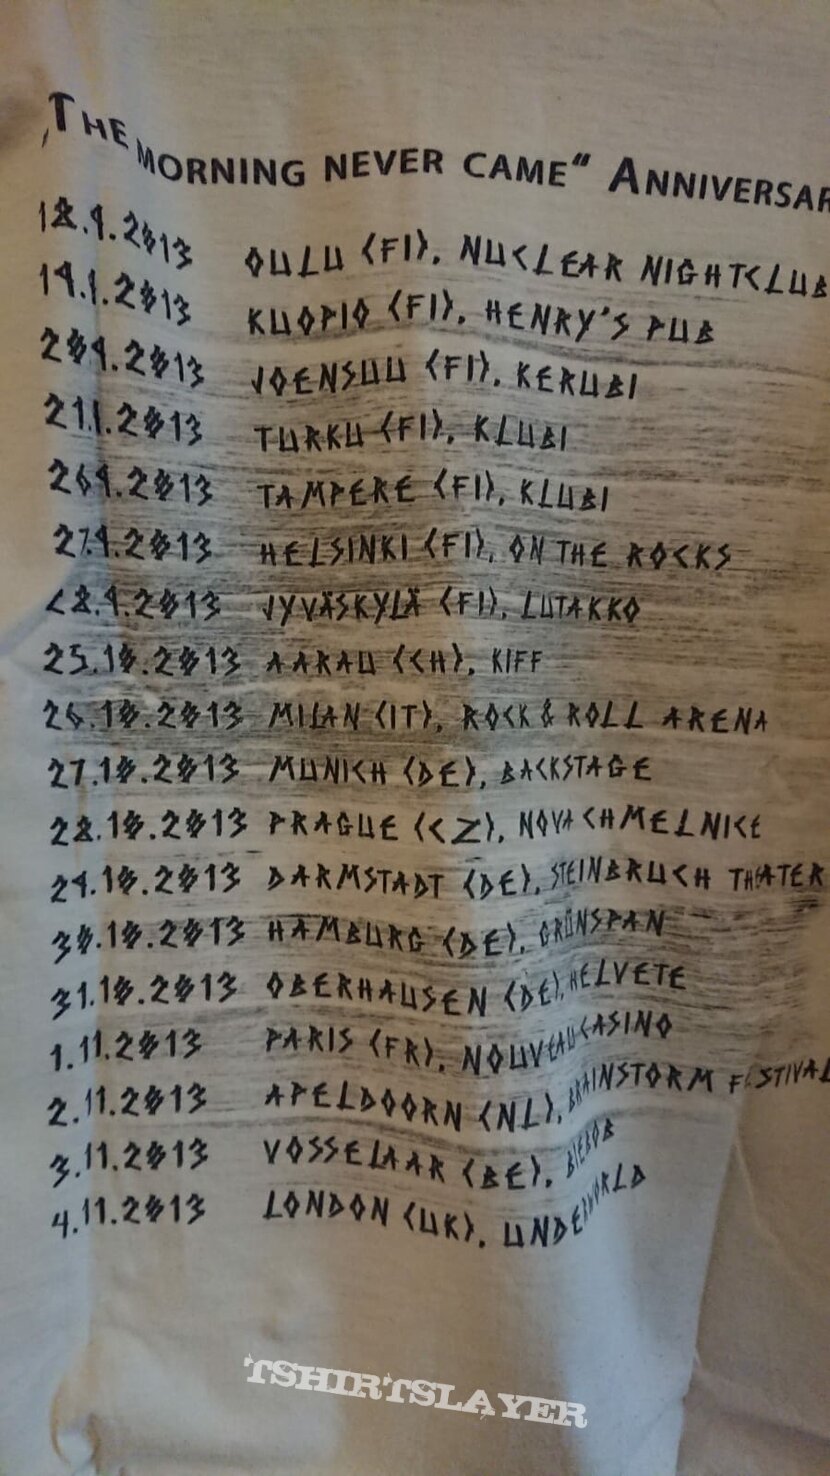 „The morning never came“ Anniversar
18.9.2013 OULU (FI), NUCLEAR NIGHTCLUB
19.9.2013 KUOPIO (FI), HENRY'S PUB
20.9.2013 JOENSUU (FI), KERUBI
21.9.2013 TURKU (FI), KLUBI
26.9.2013 TAMPERE (FI), KLUBI
27.9.2013 HELSINKI (FI), ON THE ROCKS
28.9.2013 JYVÄSKYLÄ (FI), LUTAKKO
25.10.2013 AARAU (CH), KIFF
26.10.2013 MILAN (IT), ROCK & ROLL ARENA
27.10.2013 MUNICH (DE), BACKSTAGE
28.10.2013 PRAGUE (CZ), NOVA CHMELNICE
29.10.2013 DARMSTADT (DE), STEINBRUCH THEATER
30.10.2013 HAMBURG (DE), GRÜNSPAN
31.10.2013 OBERHAUSEN (DE), HELVETE
1.11.2013 PARIS (FR), NOUVEAU CASINO
2.11.2013 APELDOORN (NL), BRAINSTORM FESTIVAL
3.11.2013 VOSSELAAR (BE), BIEBOB
4.11.2013 LONDON (UK), UNDERWORLD
TSHIRTSLAYER